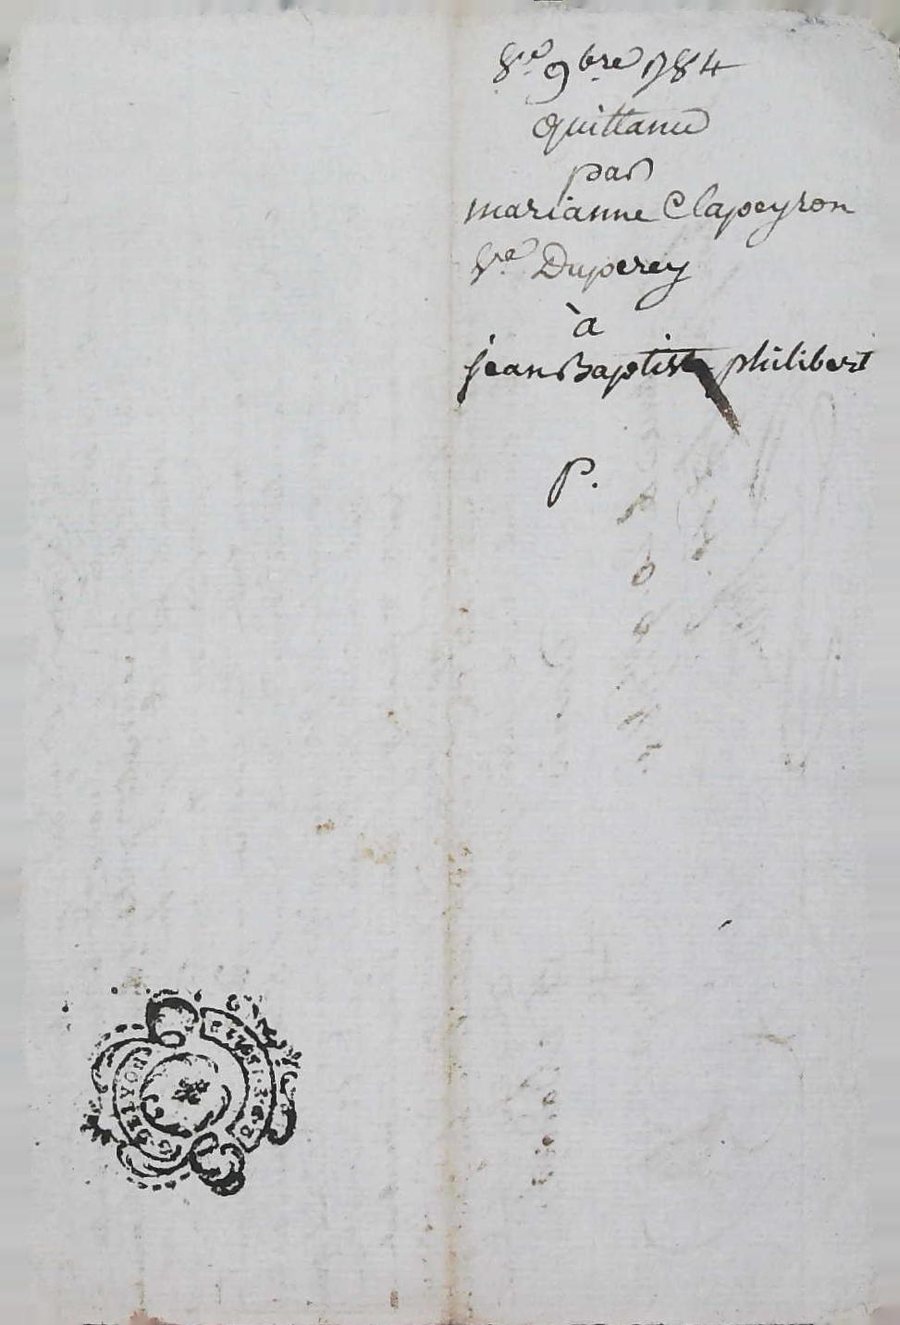 8e 9bre 1784
quittance
par
marianne Clapeyron
Ve Duperey
à
jean Baptiste philibert
P.